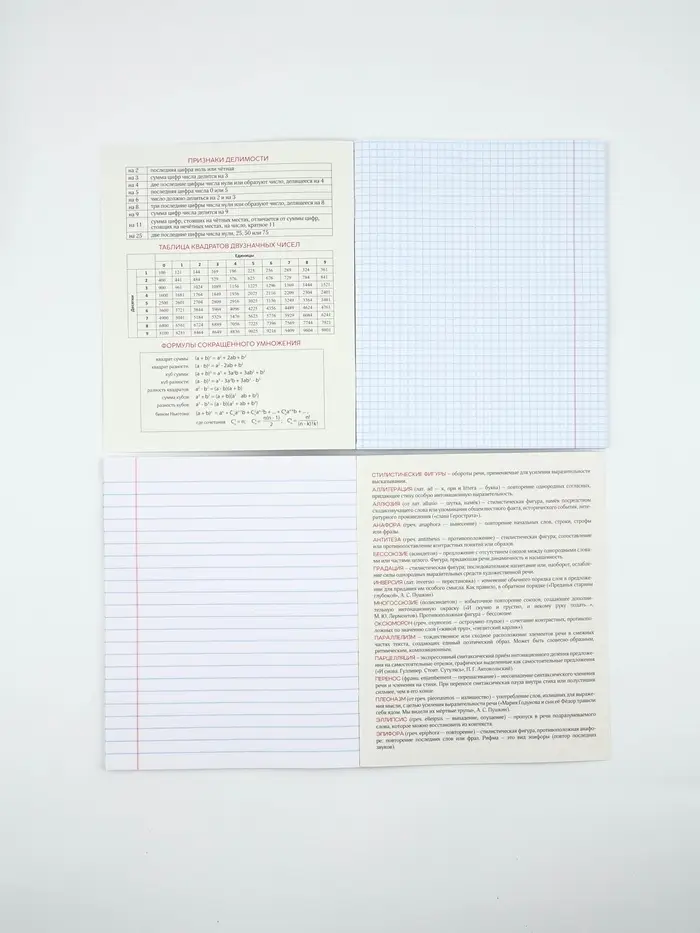 ПРИЗНАКИ ДЕЛИМОСТИ
на 2 последняя цифра ноль или чётная
на 3 сумма цифр делится на 3
на 4 две последние цифры числа нули или образуют число, делящееся на 4
на 5 последняя цифра числа 0 или 5
на 6 число должно делиться на 2 и на 3
на 8 три последние цифры числа нули или образуют число, делящееся на 8
на 9 сумма цифр делится на 9
на 11 сумма цифр, стоящих на чётных местах, отличается от суммы цифр,
стоящих на нечётных местах, на число, кратное 11
на 25 две последние цифры числа нули, 25, 50 или 75
ТАБЛИЦА КВАДРАТОВ ДВУЗНАЧНЫХ ЧИСЕЛ
Единицы
0 1 2 3 4 5 6 7 8 9
Десятки
1 100 121 144 169 196 225 256 289 324 361
2 400 441 484 529 576 625 676 729 784 841
3 900 961 1024 1089 1156 1225 1296 1369 1444 1521
4 1600 1681 1764 1849 1936 2025 2116 2209 2304 2401
5 2500 2601 2704 2809 2916 3025 3136 3249 3364 3481
6 3600 3721 3844 3969 4096 4225 4356 4489 4624 4761
7 4900 5041 5184 5329 5476 5625 5776 5929 6084 6241
8 6400 6561 6724 6889 7056 7225 7396 7569 7744 7921
9 8100 8281 8464 8649 8836 9025 9216 9409 9604 9801
ФОРМУЛЫ СОКРАЩЁННОГО УМНОЖЕНИЯ
квадрат суммы (a + b)² = a² + 2ab + b²
квадрат разности (a - b)² = a² - 2ab + b²
куб суммы (a + b)³ = a³ + 3a²b + 3ab² + b³
куб разности (a - b)³ = a³ - 3a²b + 3ab² - b³
разность квадратов a² - b² = (a - b)(a + b)
сумма кубов a³ + b³ = (a + b)(a² - ab + b²)
разность кубов a³ - b³ = (a - b)(a² + ab + b²)
бином Ньютона
где сочетания
СТИЛИСТИЧЕСКИЕ ФИГУРЫ – обороты речи, применяемые для усиления выразительности
высказывания.
АЛЛИТЕРАЦИЯ (лат. ad — к, при и littera — буква) – повторение однородных согласных,
придающее стиху особую интонационную выразительность.
АЛЛЮЗИЯ (от лат. allusio — шутка, намёк) — стилистическая фигура, намёк посредством
сходнозвучащего слова или упоминания общеизвестного факта, исторического события, лите-
ратурного произведения («слава Герострата»).
АНАФОРА (греч. anaphora — вынесение) – повторение начальных слов, строки, строфы
или фразы.
АНТИТЕЗА (греч. antithesis — противоположение) – стилистическая фигура, сопоставление
или противопоставление контрастных понятий или образов.
БЕССОЮЗИЕ (асиндетон) – предложение с отсутствием союзов между однородными слова-
ми или частями целого. Фигура, придающая речи динамичность и насыщенность.
ГРАДАЦИЯ – стилистическая фигура; последовательное нагнетание или, наоборот, ослабле-
ние силы однородных выразительных средств художественной речи.
ИНВЕРСИЯ (лат. inversio — перестановка) – изменение обычного порядка слов в предложе-
нии для придания им особого смысла. Как правило, в обратном порядке («Преданья старины
глубокой», А. С. Пушкин)
МНОГОСОЮЗИЕ (полисиндетон) – избыточное повторение союзов, создающее дополни-
тельную интонационную окраску («И скучно и грустно, и некому руку подать...»,
М. Ю. Лермонтов). Противоположная фигура – бессоюзие.
ОКСЮМОРОН (греч. oxymoron — остроумно-глупое) – сочетание контрастных, противопо-
ложных по значению слов («живой труп», «гигантский карлик»)
ПАРАЛЛЕЛИЗМ – тождественное или сходное расположение элементов речи в смежных
частях текста, создающее единый поэтический образ. Может быть словесно-образным,
ритмическим, композиционным.
ПАРЦЕЛЛЯЦИЯ – экспрессивный синтаксический приём интонационного деления предложе-
ния на самостоятельные отрезки, графически выделенные как самостоятельные предложения
ПЕРЕНОС (франц. enjambement — перешагивание) – несовпадение синтаксического членения
речи и членения на стихи. При переносе синтаксическая пауза внутри стиха или полустишия
сильнее, чем в его конце.
ПЛЕОНАЗМ (от греч. pleonasmos — излишество) – употребление слов, излишних для выраже-
ния мысли, с целью усиления выразительности речи («Мария Годунова и сын её Фёдор травили
себя ядом. Мы видели их мёртвые трупы», А. С. Пушкин).
ЭЛЛИПСИС (греч. elleipsis — выпадение, опущение) – пропуск в речи подразумеваемого
слова, которое можно восстановить из контекста.
ЭПИФОРА (греч. epiphora — повторение) – стилистическая фигура, противоположная анафо-
ре: повторение последних слов или фраз. Рифма – это вид эпифоры (повтор последних
звуков).